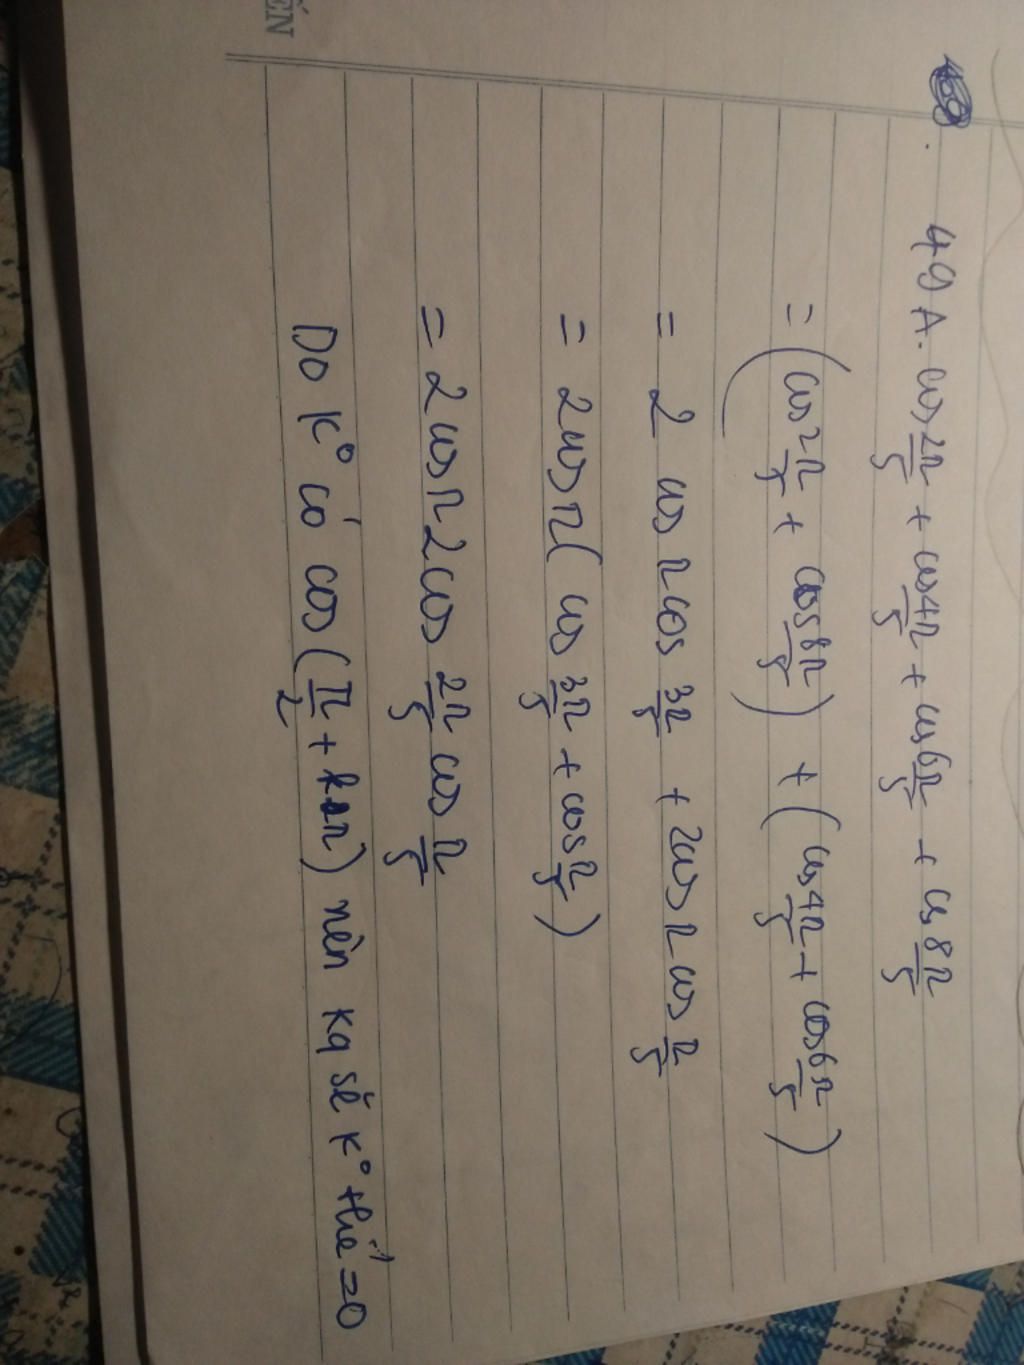 ẾN
49 A. cos 2π/5 + cos 4π/5 + cos 6π/5 + cos 8π/5
= (cos 2π/5 + cos 8π/5) + (cos 4π/5 + cos 6π/5)
= 2 cos π cos 3π/5 + 2cos π cos π/5
= 2cos π (cos 3π/5 + cos π/5)
= 2cos π 2cos 2π/5 cos π/5
Do k° có cos (π/2 + kπ) nên kq sẽ k° thể = 0